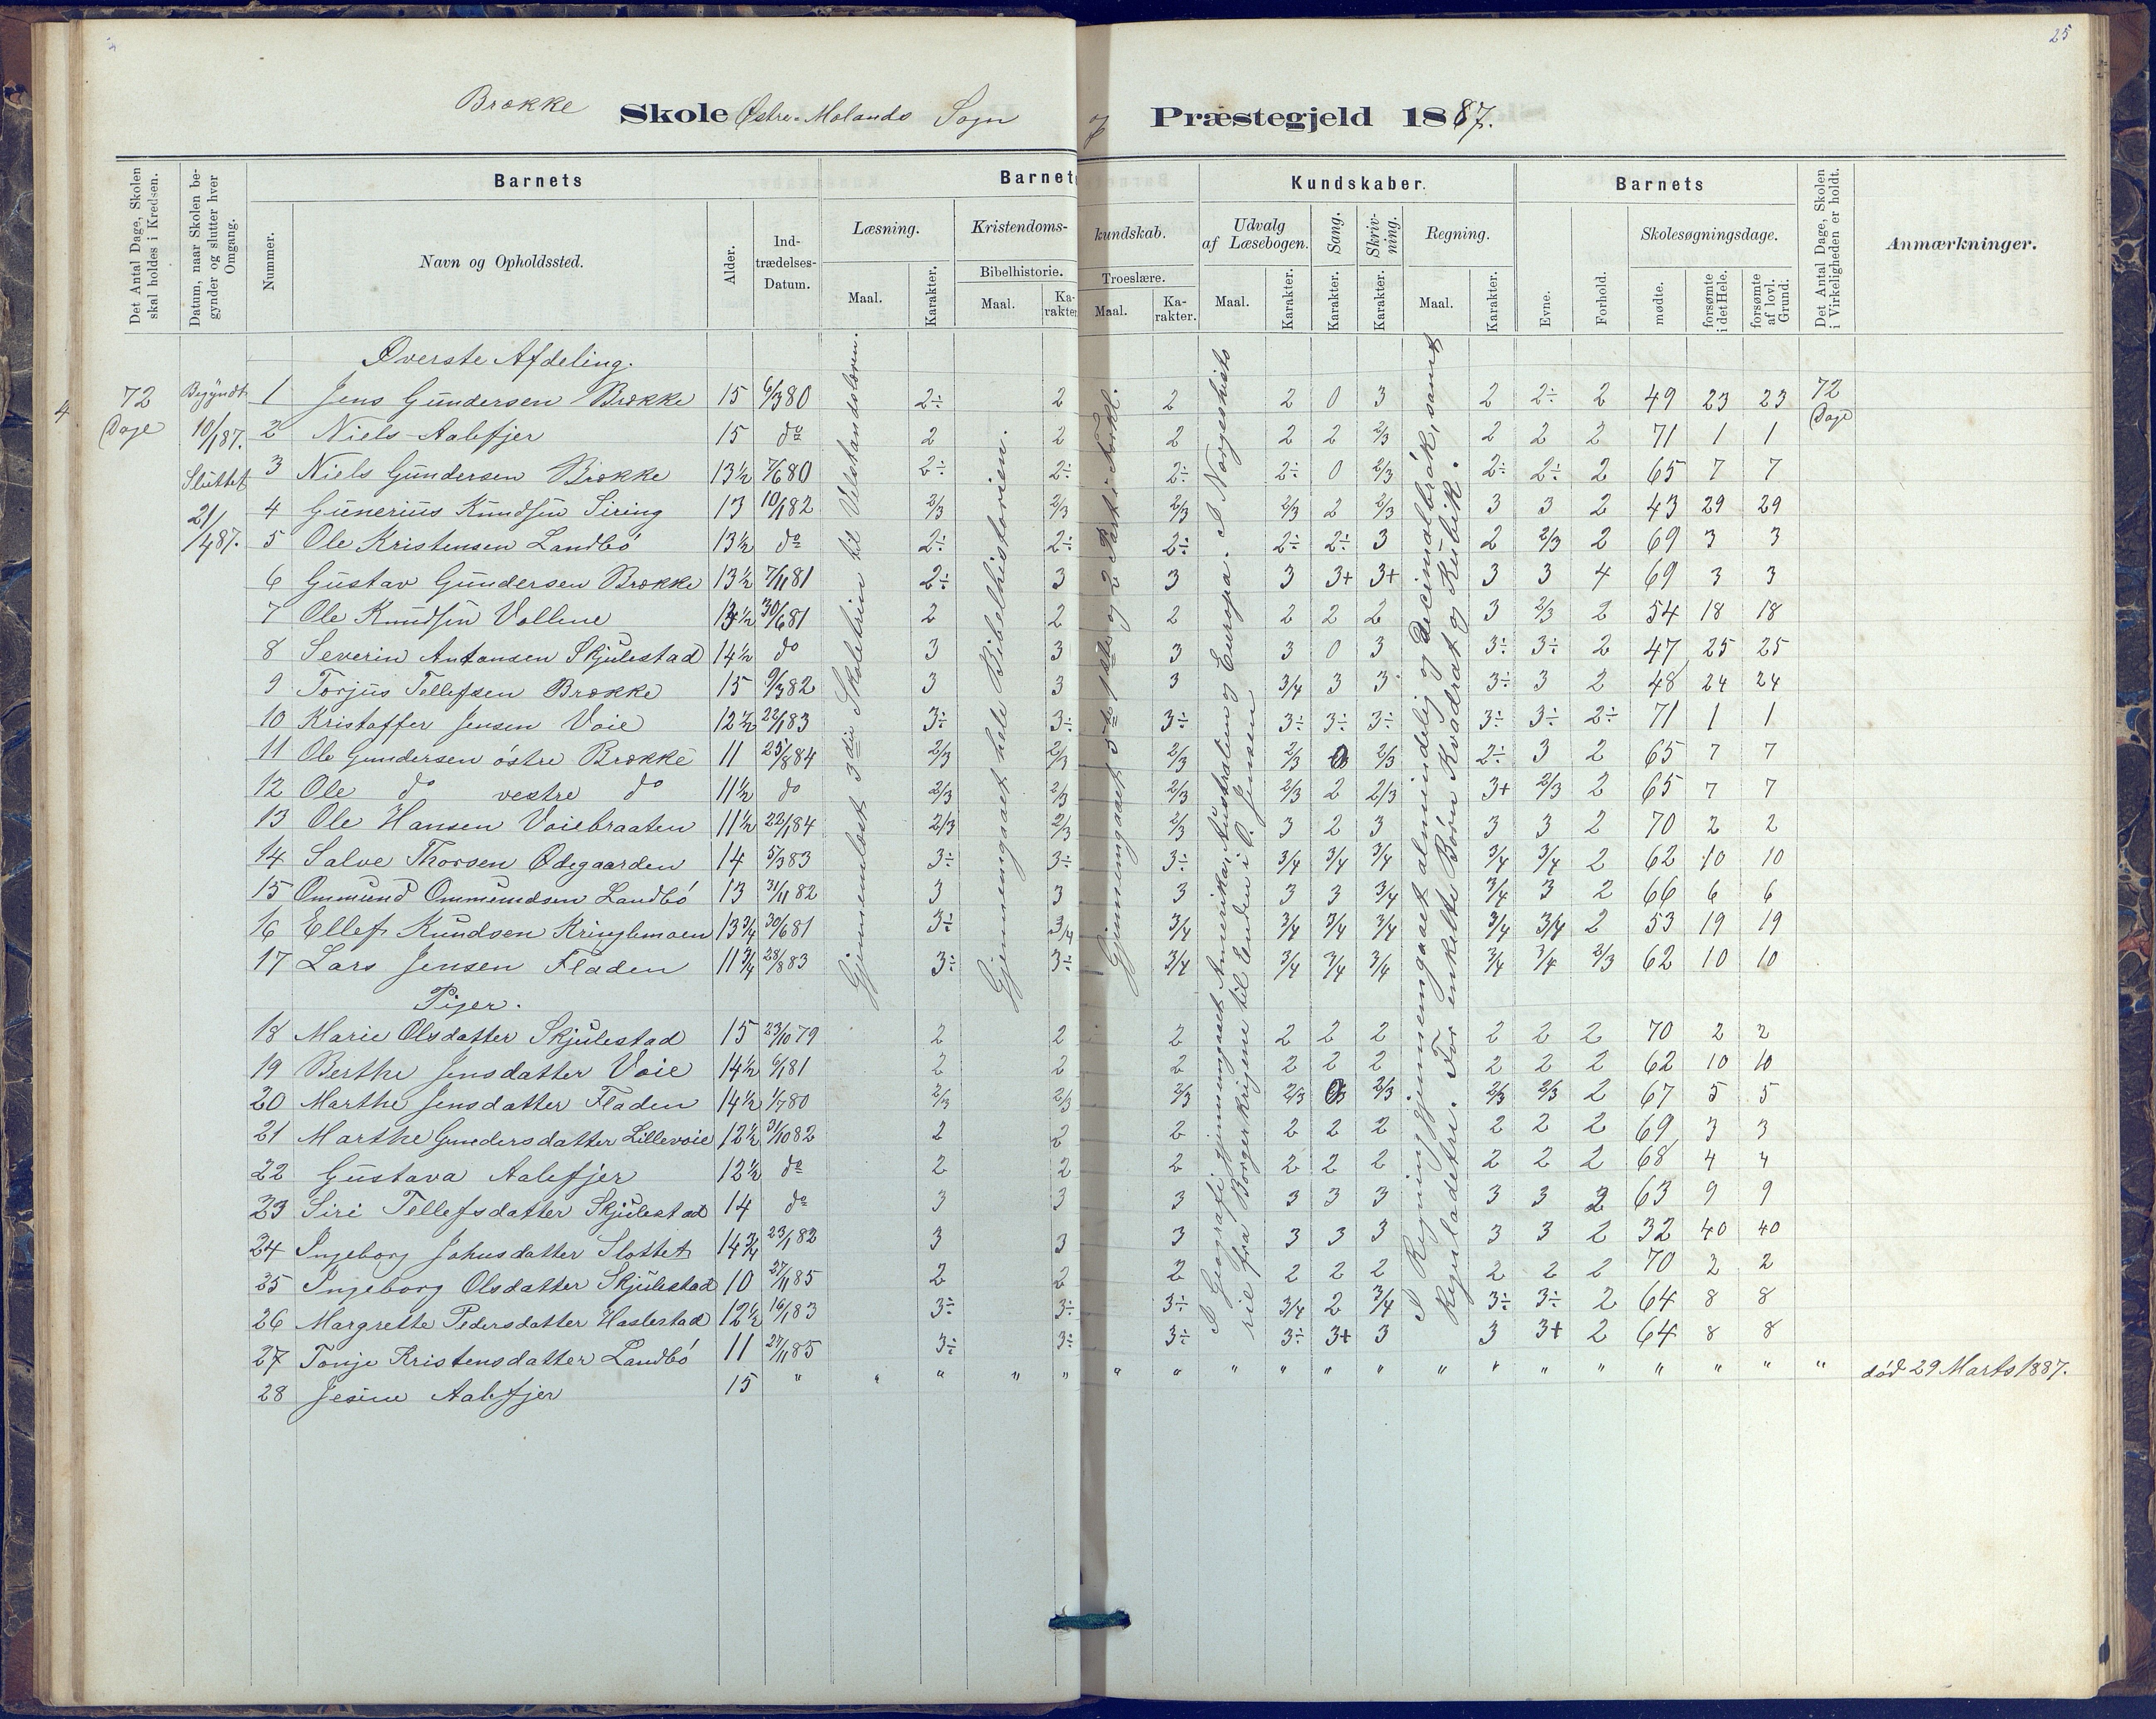 25
Brække Skole Østre-Molands Sogn og Præstegjeld 1887.
Det Antal Dage, Skolen skal holdes i Kredsen.
Datum, naar Skolen begynder og slutter hver Omgang.
Barnets
Nummer.
Navn og Opholdssted.
Alder.
Indtrædelses-Datum.
Barnets Kundskaber.
Læsning.
Maal.
Karakter.
Kristendomskundskab.
Bibelhistorie.
Maal.
Karakter.
Troeslære.
Maal.
Karakter.
Udvalg af Læsebogen.
Maal.
Karakter.
Sang.
Karakter.
Skrivning.
Karakter.
Regning.
Maal.
Karakter.
Barnets
Evne.
Forhold.
Skolesøgningsdage.
mødte.
forsømte i det Hele.
forsømte af lovl. Grund.
Det Antal Dage, Skolen i Virkeligheden er holdt.
Anmærkninger.
4
72 Dage
Begyndt 10/1 87.
Sluttet 21/4 87.
72 Dage
Gjennemlæst 3die Skoletrin til Velstandslæren.
Gjennemgaaet hele Bibelhistorien.
Gjennemgaaet 5te 1ste og 2 Part i Forkl.
I Geografi gjennemgaaet Amerika, Australien og Europa. I Norgeshistorie fra Borgerkrigene til Enden i O. Jensen
I Regning gjennemgaaet almindelig og Decimalbrøk, samt Reguladetri. For enkelte Børn Kvadrat og Kubik.
Øverste Afdeling.
1 Jens Gundersen Brække 15 6/3 80 2÷ 2 2 2 0 3 2 2÷ 2 49 23 23
2 Niels Aalefjer 15 do 2 2 2 2 2 2/3 2 2 2 71 1 1
3 Niels Gundersen Brække 13½ 7/6 80 2÷ 2÷ 2÷ 2÷ 0 2/3 2÷ 2÷ 2 65 7 7
4 Gunerius Knudsen Siring 13 10/1 82 2/3 2/3 2/3 2/3 2 2/3 3 3 2 43 29 29
5 Ole Kristensen Landbö 13½ do 2÷ 2÷ 2÷ 2÷ 2÷ 3 2 2/3 2 69 3 3
6 Gustav Gundersen Brække 13½ 7/11 81 2÷ 3 3 3 3+ 3+ 3 3 4 69 3 3
7 Ole Knudsen Vollene 13½ 30/6 81 2 2 2 2 2 2 3 2/3 2 54 18 18
8 Severin Antonsen Skjulestad 14½ do 3 3 3 3 0 3 3÷ 3÷ 2 47 25 25
9 Torjus Tellefsen Brække 15 9/3 82 3 3 3 3/4 3 3 3÷ 3 2 48 24 24
10 Kristoffer Jensen Voie 12½ 22/1 83 3÷ 3÷ 3÷ 3÷ 3÷ 3÷ 3÷ 3÷ 2÷ 71 1 1
11 Ole Gundersen östre Brække 11 25/8 84 2/3 2/3 2/3 2/3 0 2/3 2÷ 3 2 65 7 7
12 Ole do vestre do 11½ do 2/3 2/3 2/3 2/3 2 2/3 3+ 2/3 2 65 7 7
13 Ole Hansen Voiebraaten 11½ 22/1 84 2/3 2/3 2/3 3 2 3 3 3 2 70 2 2
14 Salve Thorsen Ødegaarden 14 5/3 83 3÷ 3÷ 3÷ 3/4 3/4 3/4 3/4 3/4 2 62 10 10
15 Ommund Ommundsen Landbö 13 31/11 82 3 3 3 3 3 3/4 3/4 3 2 66 6 6
16 Ellef Kundsen Kringlemoen 13¾ 30/6 81 3÷ 3/4 3/4 3/4 3/4 3/4 3/4 3/4 2 53 19 19
17 Lars Jensen Fladen 11¾ 28/8 83 3÷ 3÷ 3/4 3/4 3/4 3/4 3/4 3/4 2/3 62 10 10
Piger.
18 Marie Olsdatter Skjulestad 15 23/10 79 2 2 2 2 2 2 2 2 2 70 2 2
19 Berthe Jensdatter Voie 14½ 6/1 81 2 2 2 2 2 2 2 2 2 62 10 10
20 Marthe Jensdatter Fladen 14½ 1/7 80 2/3 2/3 2/3 2/3 2/3 2/3 2/3 2 67 5 5
21 Marthe Gundersdatter Lillevoie 12½ 31/10 82 2 2 2 2 2 2 2 2 2 69 3 3
22 Gustava Aalefjer 12½ do 2 2 2 2 2 2 2 2 2 68 4 4
23 Siri Tellefsdatter Skjulestad 14 do 3 3 3 3 3 3 3 3 2 63 9 9
24 Ingeborg Johnsdatter Slottet 14¾ 23/1 82 3 3 3 3 3 3 3 3 2 32 40 40
25 Ingeborg Olsdatter Skjulestad 10 27/11 85 2 2 2 2 2 2 2 2 2 70 2 2
26 Margrethe Pedersdatter Haslestad 12½ 16/1 83 3÷ 3÷ 3÷ 3/4 2 3/4 3÷ 3÷ 2 64 8 8
27 Tonje Kristensdatter Landbö 11 27/11 85 3÷ 3÷ 3÷ 3÷ 3+ 3 3 3+ 2 64 8 8
28 Jesine Aalefjer 15 " " " " " " " " " " " " " " " " " " " død 29 Marts 1887.